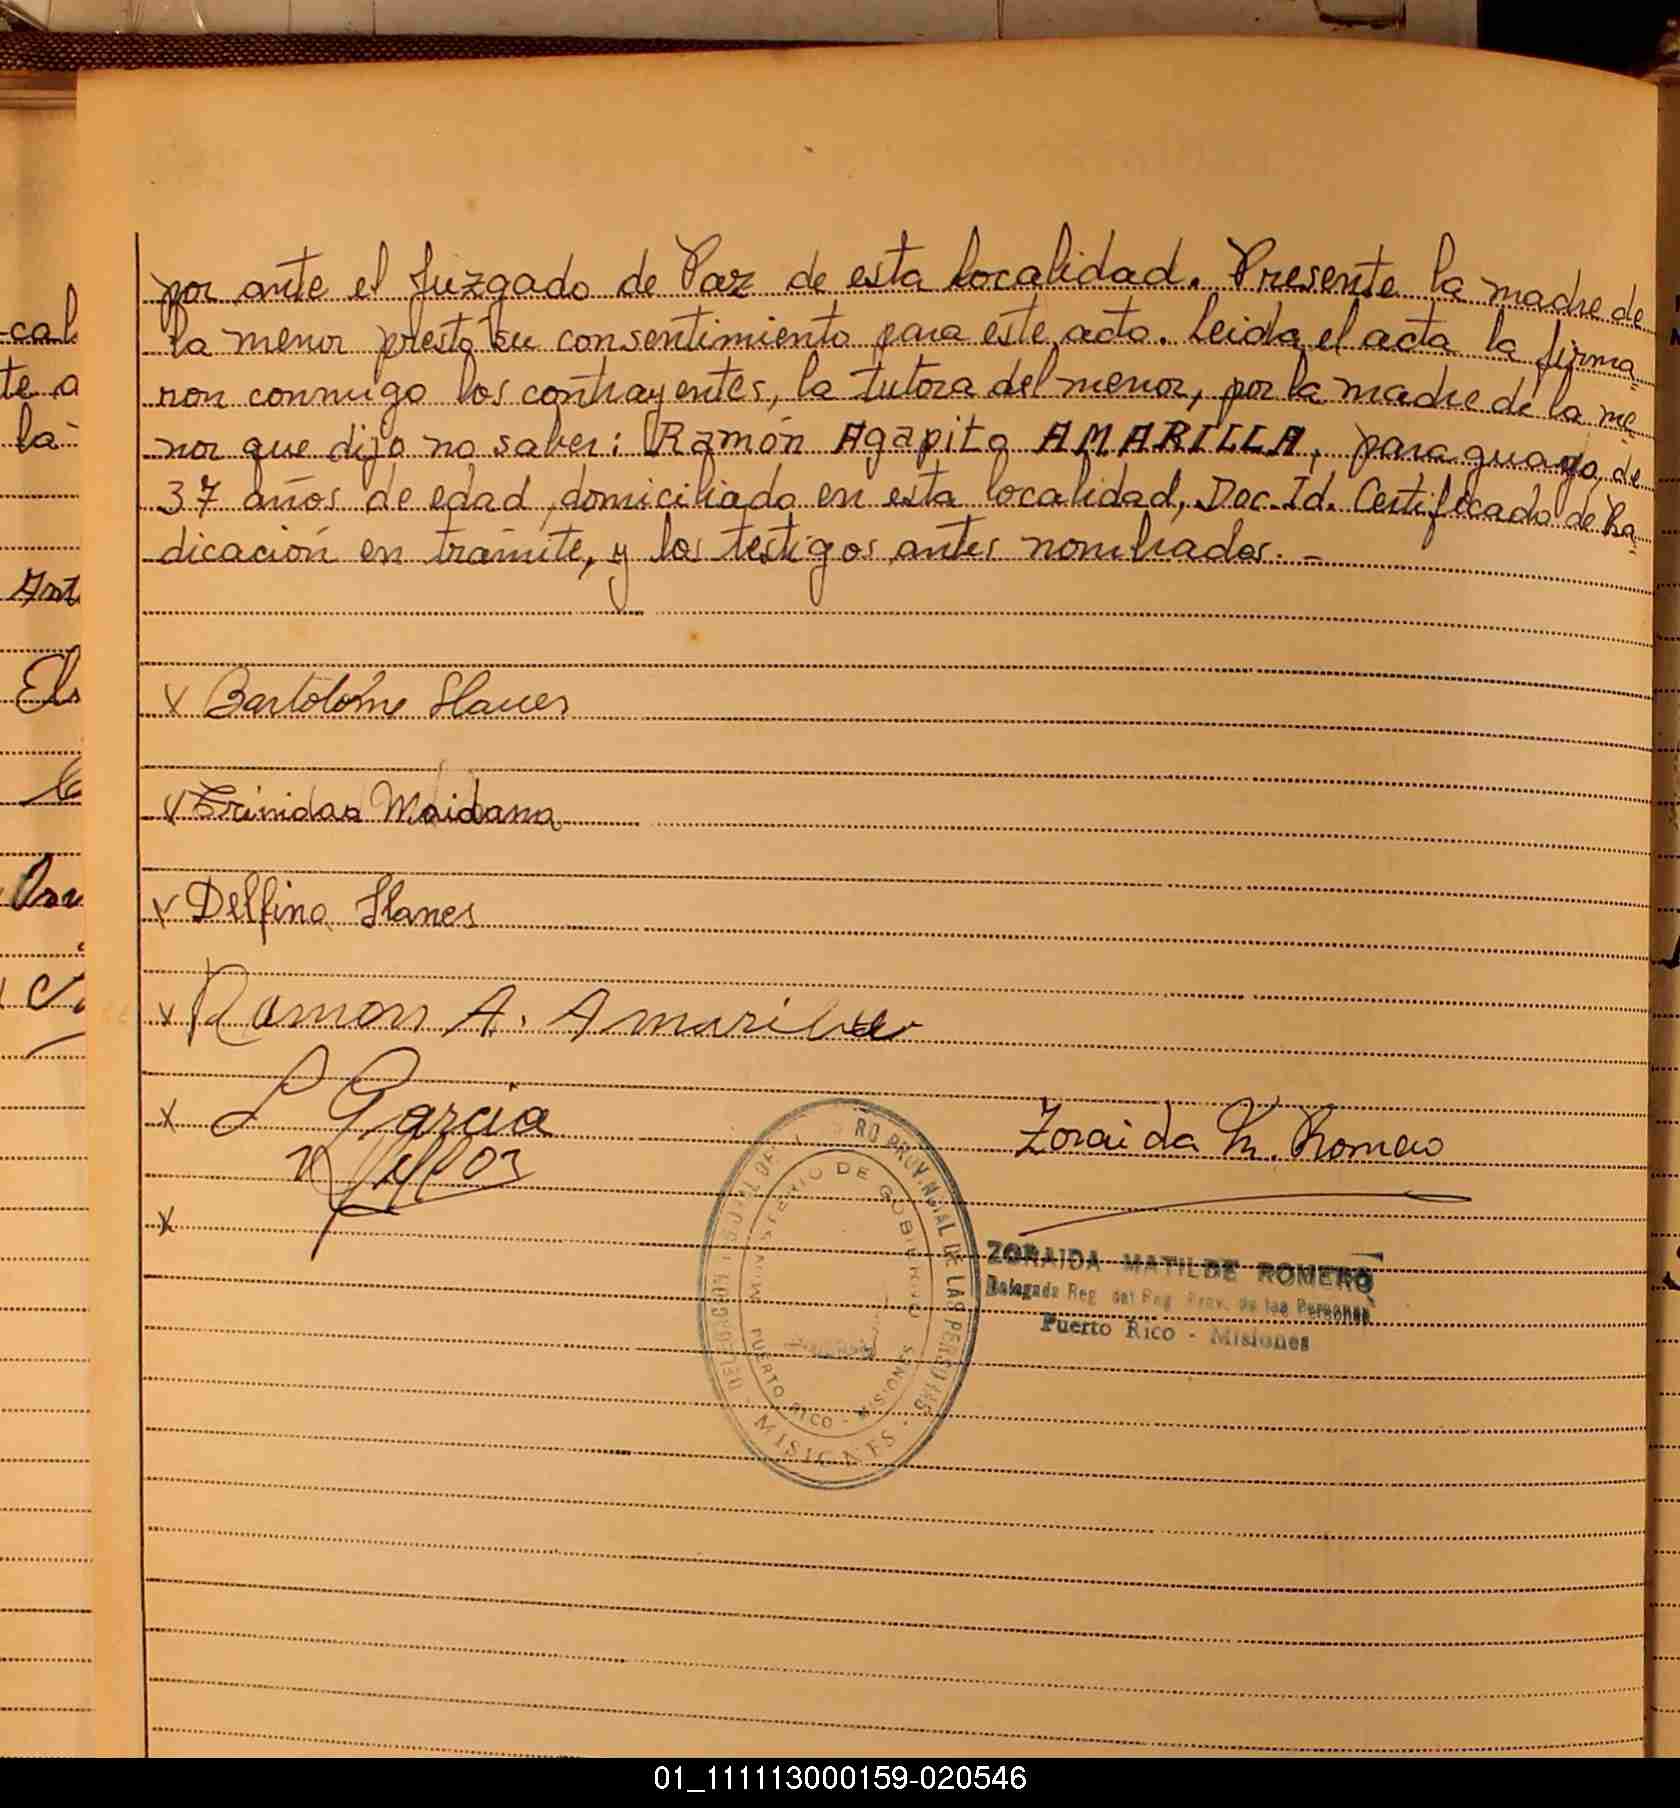 por ante el Juzgado de Paz de esta localidad. Presente la madre de
la menor prestó su consentimiento para este acto. Leida el acta la firma-
ron conmigo los contrayentes, la tutora del menor, por la madre de la me-
nor que dijo no saber: Ramón Agapito AMARILLA, paraguayo, de
37 años de edad, domiciliado en esta localidad, Doc. Id. Certificado de Ra-
dicación en trámite, y los testigos antes nombrados. -
x Bartolome Llanes
x Trinidad Maidana
x Delfina Llanes
x Ramon A. Amarilla
x Garcia
x
Zoraida M. Romero
DELEGACION PROVINCIAL DE LAS PERSONAS
MISIONES
MINISTERIO DE GOBIERNO
PUERTO RICO - MISIONES
ZORAIDA MATILDE ROMERO
Delegada Reg. del Reg. Prov. de las Personas
Puerto Rico - Misiones
-cal
te a
la
Ant
Els
01_111113000159-020546